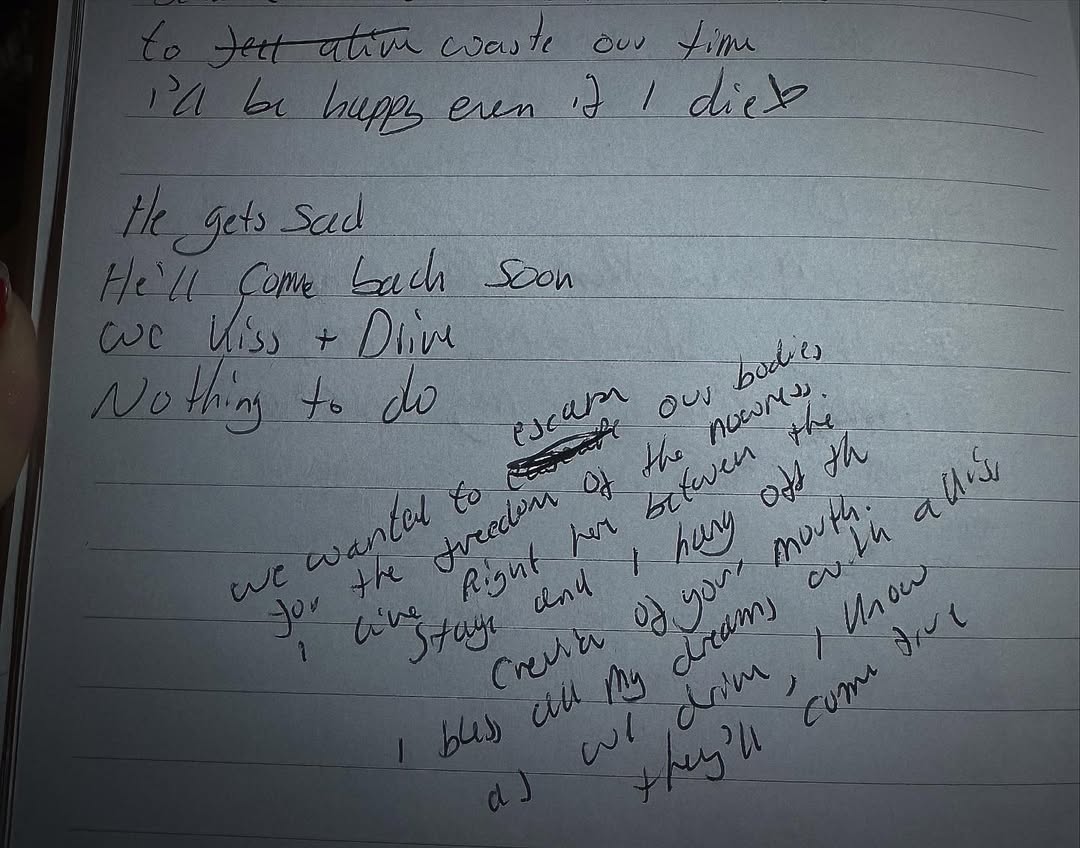 to feel alive waste our time
i'll be happy even if I die
He gets sad
He'll come back soon
we kiss + Drive
Nothing to do
we wanted to escape our bodies
for the freedom of the nowness.
I live Right here between the
stage and I hang off the
crevice of your mouth.
I bless all my dreams with a kiss
as we drive, I know
they'll come true